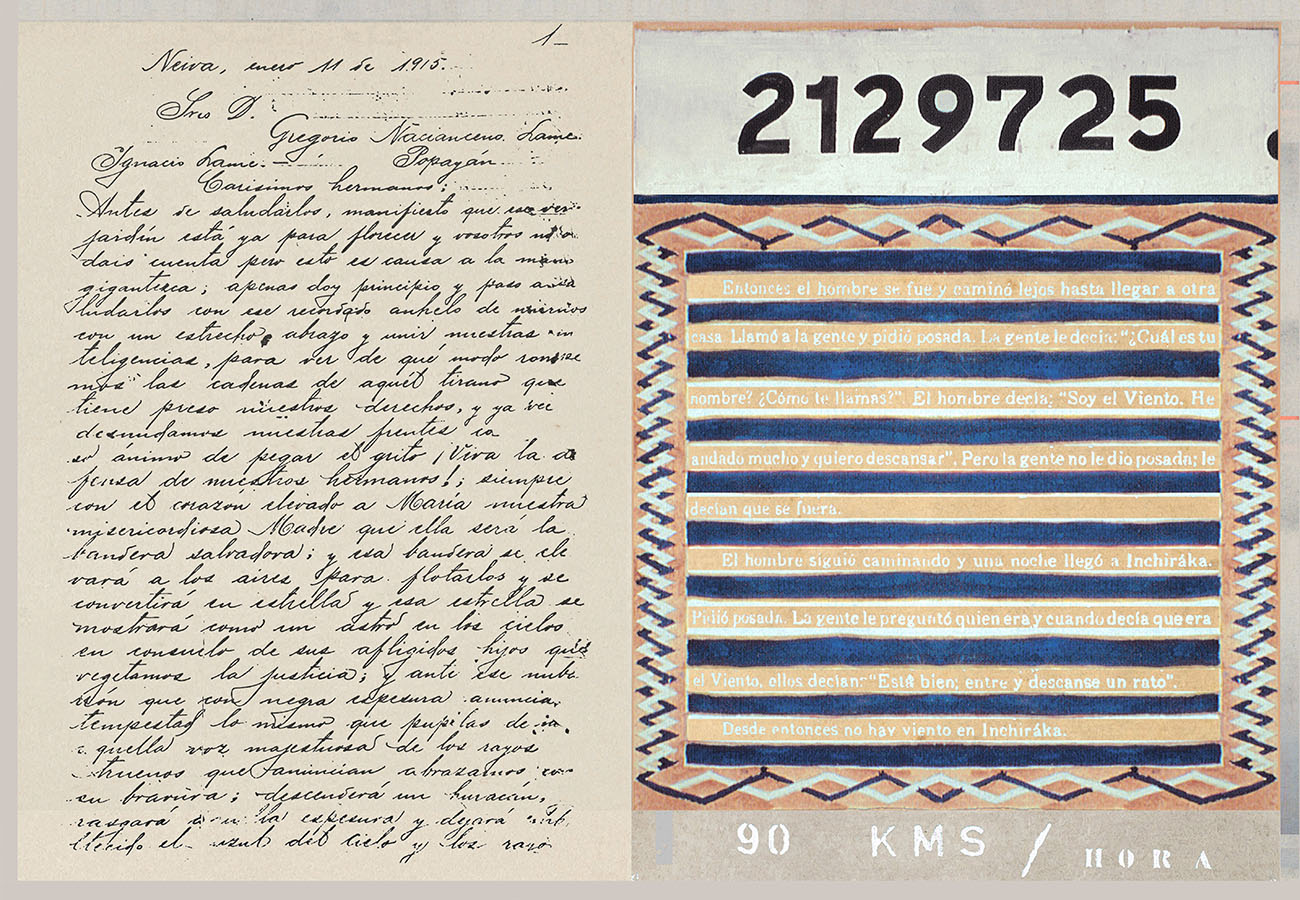 1-
Neiva, enero 11 de 1915.
Sres D.
Gregorio Nacianceno Lame.
Ignacio Lame. — Popayán
Carisimos hermanos;
Antes de saludarlos, manifiesto que ese ver
jardín está ya para florecer y vosotros no o
dais cuenta pero esto es causa a la mano
gigantesca; apenas doy principio y paso a sa
ludarlos con ese recordado anhelo de
con un estrecho abrazo y unir nuestras in
teligencias, para ver de qué modo
mos las cadenas de aquél tirano que
tiene preso nuestros derechos, y ya
desnudamos nuestras frentes co
so ánimo de pegar el grito ¡Viva la de
fensa de nuestros hermanos!; siempre
con el corazón elevado a María nuestra
misericordiosa Madre que ella será la
bandera salvadora; y esa bandera se ele
vará a los aires para flotarlos y se
convertirá en estrella y esa estrella se
mostrará como un astro en los cielos
en consuelo de sus afligidos hijos que
vegetamos la justicia; y ante ese nuba
rón que con negra espesura anuncia
tempestad lo mismo que pupilas de
quella voz majestuosa de los rayos
truenos que anuncian abrazarnos con
su bravura; descenderá un huracán,
rasgará la espesura y dejará
el azul del cielo y los rayo
2129725
Entonces el hombre se fue y caminó lejos hasta llegar a otra
casa. Llamó a la gente y pidió posada. La gente le decía: "¿Cuál es tu
nombre? ¿Cómo te llamas?". El hombre decía: "Soy el Viento. He
andado mucho y quiero descansar". Pero la gente no le dio posada; le
decían que se fuera.
El hombre siguió caminando y una noche llegó a Inchiráka.
Pidió posada. La gente le preguntó quien era y cuando decía que era
el Viento, ellos decían: "Está bien; entre y descanse un rato".
Desde entonces no hay viento en Inchiráka.
90 KMS / HORA